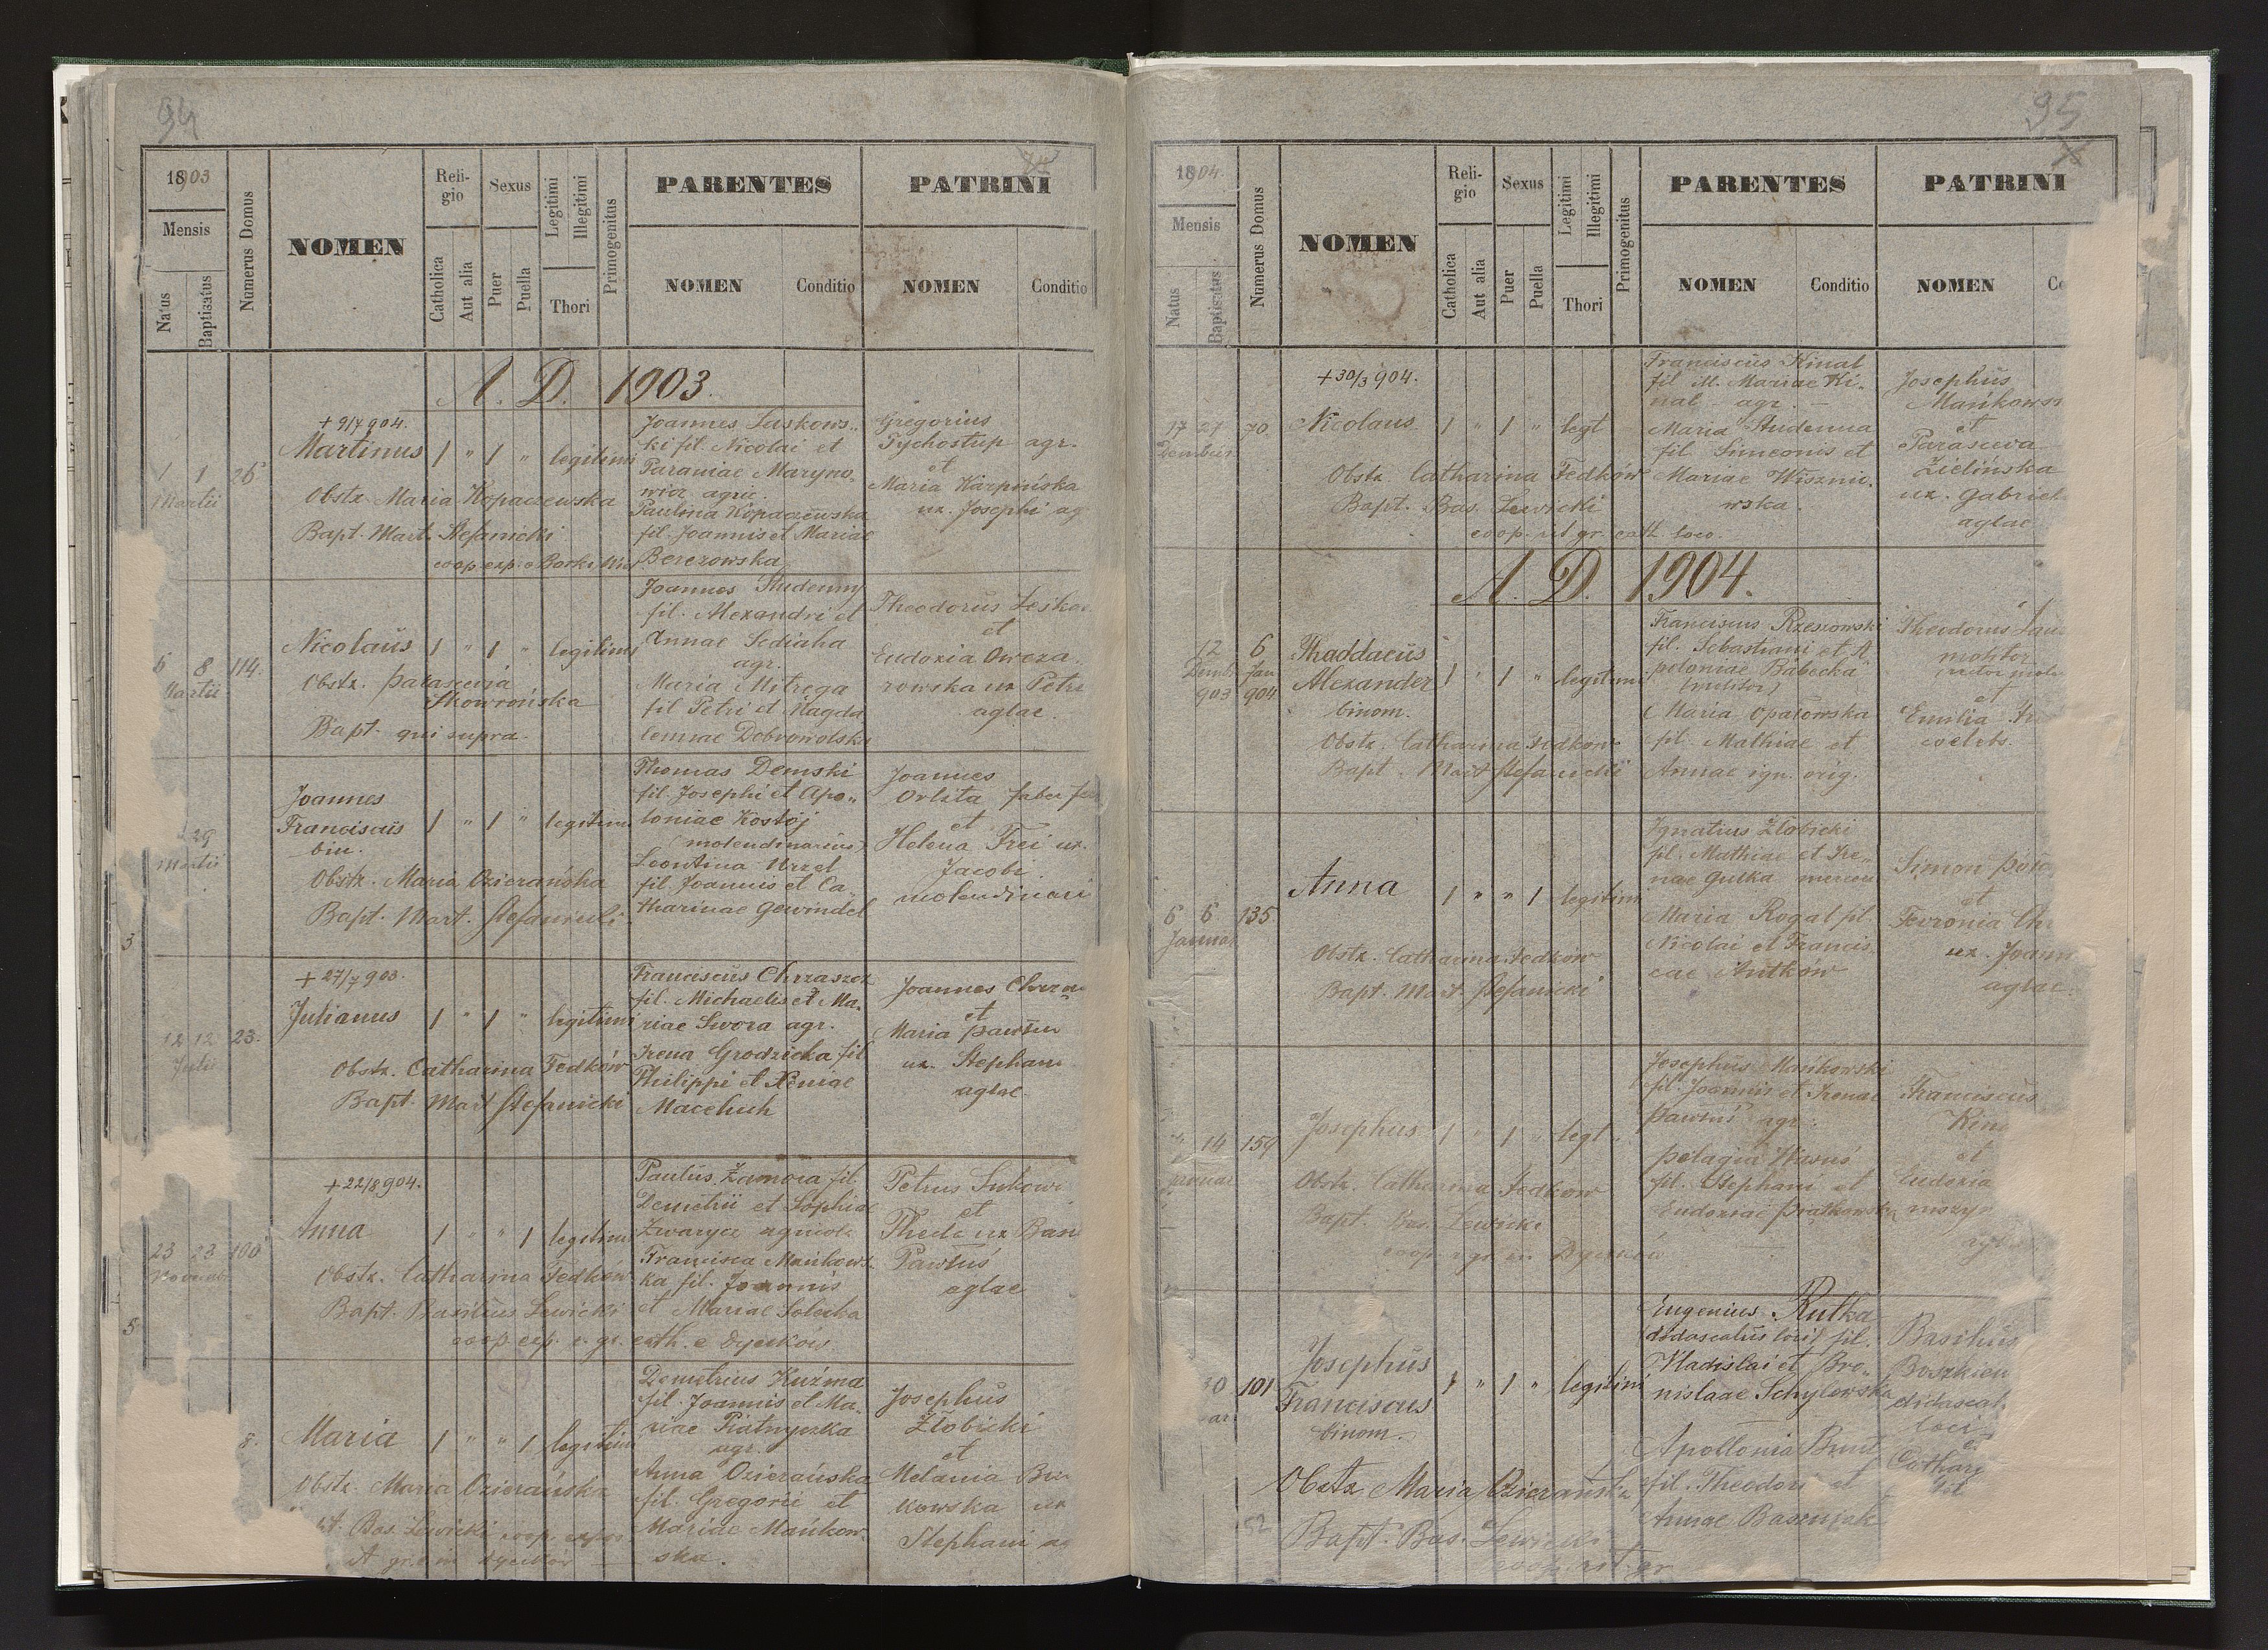 94
1903
Mensis
Natus
Baptisatus
Numerus Domus
NOMEN
Reli-
gio
Catholica
Aut alia
Sexus
Puer
Puella
Legitimi
Illegitimi
Thori
Primogenitus
PARENTES
NOMEN
Conditio
PATRINI
NOMEN
Conditio
A. D. 1903.
1 1
Martii
26
+ 9/7 904.
Martinus
1 " 1 " legitimi
Obstx. Maria Kopaczewska
Bapt. Mart. Stefanicki
coop. exp. e Borki
Joannes Laskows-
ki fil. Nicolai et
Paraniae Maryno-
wicz agric.
Paulina Kopaczewska
fil. Joannis et Mariae
Berezowska
Gregorius
Pychostup agr.
et
Maria Karpińska
ux. Josephi ag
6 8
Martii
114.
Nicolaüs
1 " 1 " legitimi
Obstx. Parascevia
Skowrońska
Bapt. qui supra.
Joannes Studenny
fil. Alexandri et
Annae Sediaha
agr.
Maria Mitręga
fil Petri et Magda
lennae Dobrowolska
Theodorüs
et
Eudoxia Owcza
rowska ux Petri
aglae.
29
Martii
Joannes
Franciscüs
bin.
1 " 1 " legitimi
Obstx. Maria Ozierańska
Bapt. Mart. Stefanicki
Thomas Demski
fil. Josephi et Apo-
loniae Kostoj
(molendinarius)
Leontina Urzel
fil. Joannis et Ca-
tharinae Gewindel
Joannes
Orlita faber
et
Helena Frei ux.
Jacobi
molendinari
3
12 12
Julii
23.
+ 27/7 903.
Julianus
1 " 1 " legitimi
Obstx. Catharina Fedków
Bapt. Mart Stefanicki
Franciscüs Chrzaszcz
fil. Michaelis et Ma-
riae Swora agr.
Irena Grodzicka fil
Philippi et Xeniae
Macehuch
Joannes
et
Maria
ux. Stephani
aglae.
23 23
100
+ 22/8 904.
Anna
1 " " 1 legitimi
Obstx. Catharina Fedków
Bapt. Basilius Lewicki
coop. exp. r. gr. cath. e Dyczków
Paulüs Zamora fil.
Demetrii et Sophiae
Zwarycz agricola
Francisca Mańkows-
ka fil. Joannis
et Mariae Solecka
Petrus
et
Thecla ux
Pawluś
aglae
5
8.
Maria
1 " " 1 legitimi
Obstx. Maria Ozierańska
Bas. Lewicki coop. expos
gr. c in Dyczków
Demetrius Kuźma
fil. Joannis et Ma-
riae Piatnyczka
agr.
Anna Ozierańska
fil. Gregorii et
Mariae Mańkow-
ska.
Josephüs
Złobicki
et
Melania
kowska ux
Stephani ag
95
1904.
Mensis
Natus
Baptisatus
Numerus Domus
NOMEN
Reli-
gio
Catholica
Aut alia
Sexus
Puer
Puella
Legitimi
Illegitimi
Thori
Primogenitus
PARENTES
NOMEN
Conditio
PATRINI
NOMEN
Co
17 27
70.
+ 30/3 904.
Nicolaus
1 " 1 " legt
Obstx. Catharina Fedków
Bapt. Bas. Lewicki
coop. rit gr. cath. loco.
Franciscüs Kinal
fil M. Mariae Ki-
nal agr. -
Maria Studenna
fil. Simeonis et
Mariae Wiszniе-
wska.
Josephüs
Mańkows
et
Parasceva
Zielińska
ux. Gabrieli
aglae
A. D. 1904.
12 6
Jan
903 904
Thaddaeüs
Alexander
binom.
1 " 1 " legitimi
Obstx. Catharina Fedków
Bapt. Mart Stefanicki
Franciscus Rzeszowski
fil. Sebastiani et A
poloniae Babecka
Maria Opatowska
fil. Mathiae et
Annae ign. orig.
Theodorus
et
Emilia
6 6
Januar
135
Anna
1 " " 1 legitimi
Obstx. Catharina Fedków
Bapt. Mart. Stefanicki
Ignatius Złobicki
fil. Mathiae et Ire-
nae Gulka
Maria Rogal fil.
Nicolai et Francis-
cae Antków
Simon
et
Fevronia
ux. Joann
aglae.
14
Januar
159
Josephus
1 " 1 " legt.
Obstx. Catharina Fedków
Bapt. Bas. Lewicki
coop r gr. in Dyczków
Josephüs Mańkowski
fil. Joannis et Irenae
Pawluś agr.
Pelagia
fil. Stephani et
Eudoxiae
Franciscüs
Kina
et
Eudoxia
101
Josephüs
Franciscus
binom.
1 " 1 " legitimi
Obstx Maria Ozierańska
Bapt. Bas. Lewicki
coop. rit. gr
Eugenius Rutka
(didascalüs loci) fil.
Vladislai et Bro-
nislaae Schylewska
Apollonia
fil. Theodori et
Annae Baszniak
Basiliüs
didascal
loci
et
Cathar